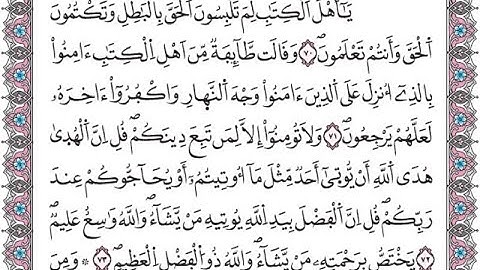 يَٰٓأَهْلَ اَ۬لْكِتَٰبِ لِمَ تَلْبِسُونَ اَ۬لْحَقَّ بِالْبَٰطِلِ وَتَكْتُمُونَ
اَ۬لْحَقَّ وَأَنتُمْ تَعْلَمُونَۖ ٧٠ وَقَالَت طَّآئِفَةٞ مِّنَ اَهْلِ اِ۬لْكِتَٰبِ ءَامِنُواْ
بِالذِےٓ أُنزِلَ عَلَي اَ۬لذِينَ ءَامَنُواْ وَجْهَ اَ۬لنَّه۪ارِ وَاكْفُرُوٓاْ ءَاخِرَهُۥ
لَعَلَّهُمْ يَرْجِعُونَۖ ٧١ وَلَا تُومِنُوٓاْ إِلَّا لِمَن تَبِعَ دِينَكُمْۖ قُلِ اِنَّ اَ۬لْهُد۪يٰ
هُدَي اَ۬للَّهِ أَنْ يُّوت۪يٰٓ أَحَدٞ مِّثْلَ مَآ أُوتِيتُمُۥٓ أَوْ يُحَآجُّوكُمْ عِندَ
رَبِّكُمْۖ قُلِ اِنَّ اَ۬لْفَضْلَ بِيَدِ اِ۬للَّهِ يُوتِيهِ مَنْ يَّشَآءُۖ وَاللَّهُ وَٰسِعٌ عَلِيمٞۖ
٧٢ يَخْتَصُّ بِرَحْمَتِهِۦ مَنْ يَّشَآءُۖ وَاللَّهُ ذُو اُ۬لْفَضْلِ اِ۬لْعَظِيمِۖ ٧٣ ۞ وَمِنَ